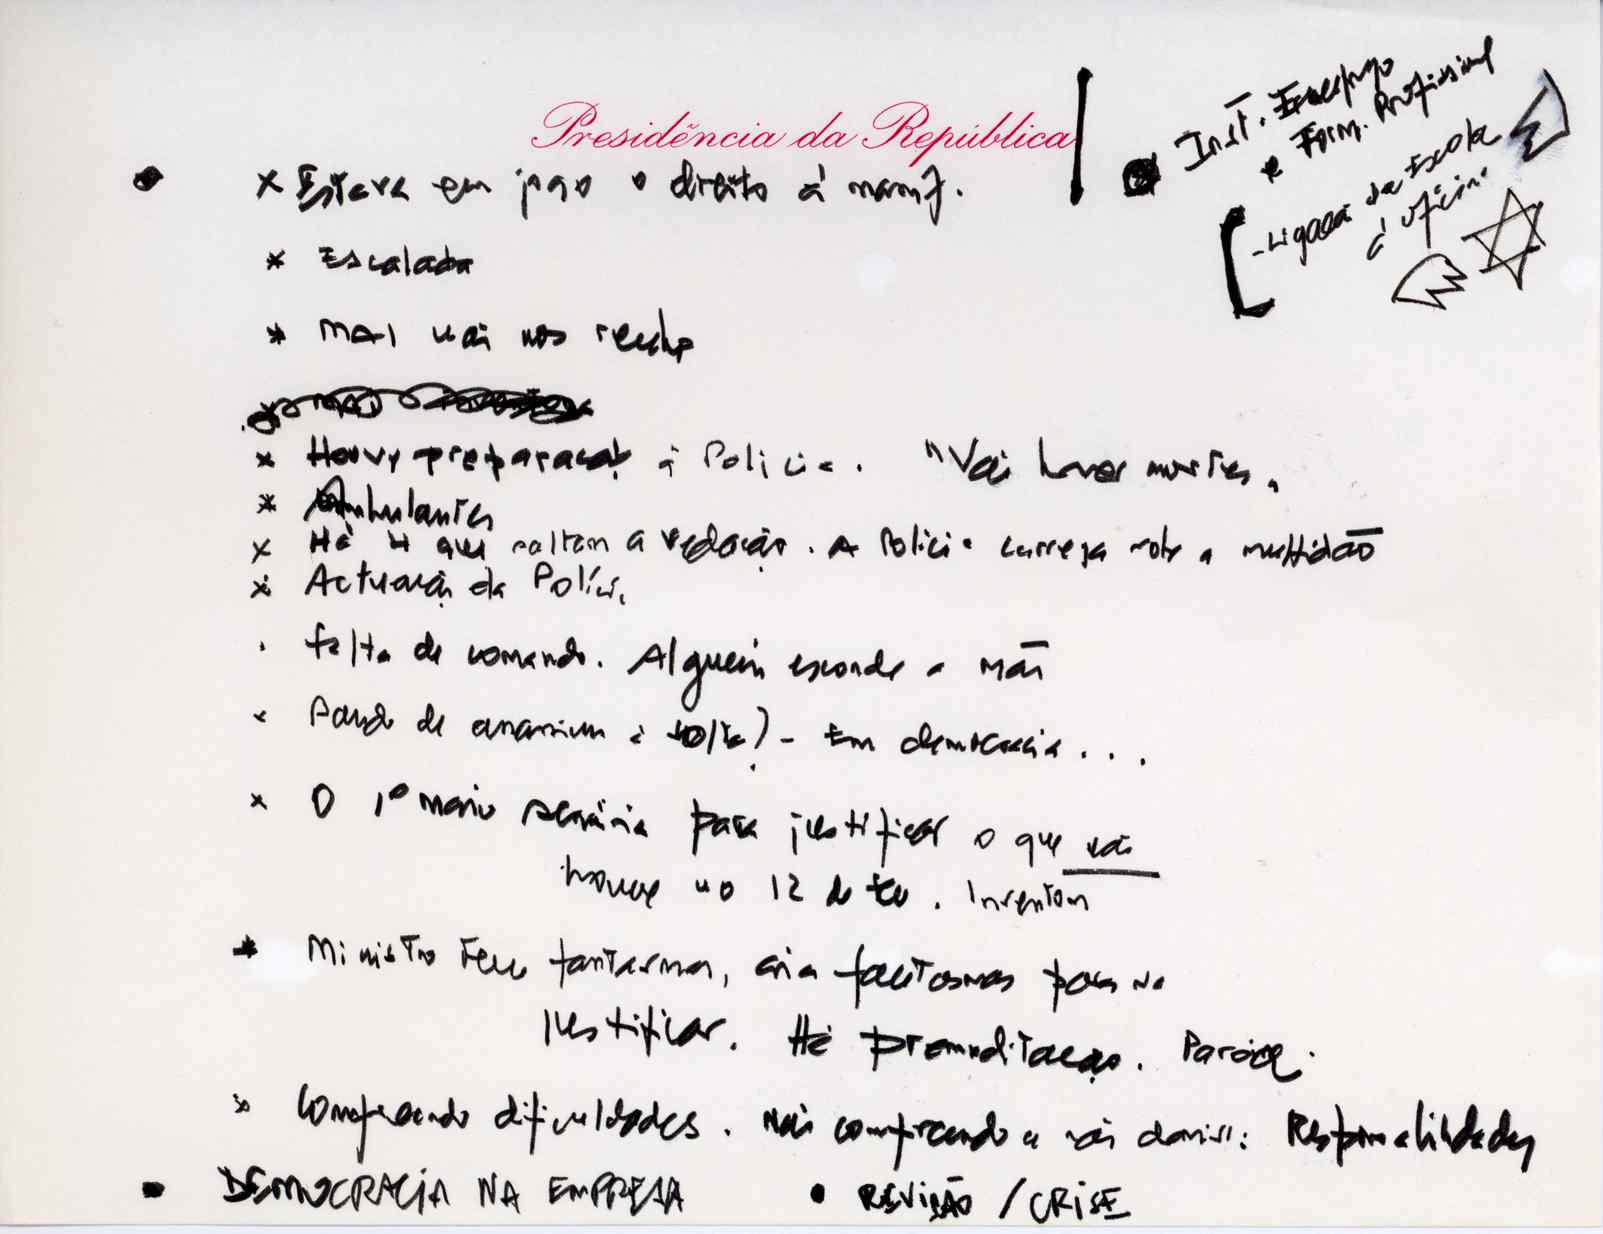 Presidência da República
Inst. Emprego
e Form. Profissional
- Ligação da Escola
à oficina
x Estava em jogo o direito à manif.
* Escalada
* MAI não nos recebe
* Houve preparação à Polícia. "Vai haver mortes"
* Ambulantes
x Há 4 que saltam a vedação. A Polícia carrega sobre a multidão
x Actuação da Polícia
. falta de comando. Alguém esconde a mão
x de à solta? - Em democracia...
x O 1º Maio serviria para justificar o que não
houve no 12 de Fev. Inventam
* Ministro tem fantasmas, cria fantasmas para se
justificar. Há premeditação.
x Compreendo dificuldades. Não compreendo a não demis. Responsabilidades
• DEMOCRACIA NA EMPRESA • REVISÃO / CRISE